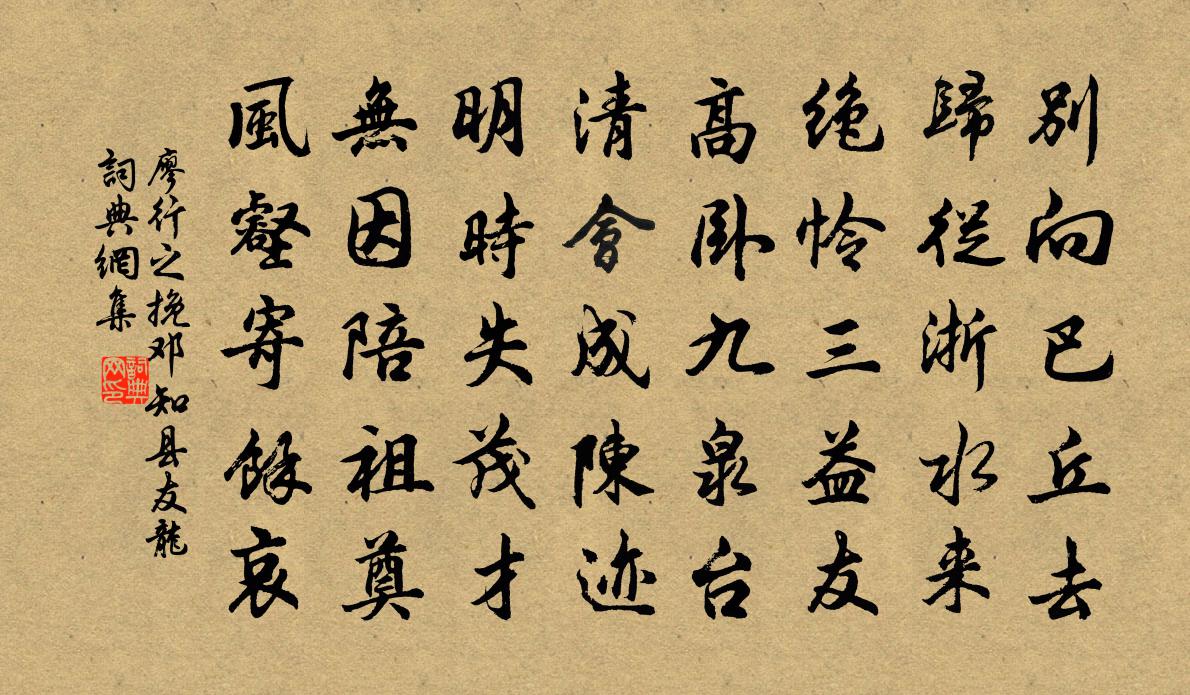 别向巴丘去
歸從浙水来
绝怜三益友
高卧九泉台
清會成陳迹
明時失茂才
無因陪祖奠
風壑寄餘哀
廖行之挽邓知县友龍
詞典網集
詞典网印